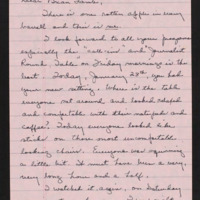 Dear Brian Lamb,
There is one rotten apple in every
barrel and this is me.
I look forward to all your programs
especially the "call-ins" and "Journalist
Round Table" on Friday morning is the
best. Today, January 29th, you had
your new setting. Where is the table
everyone sat around and looked
and comfortable with their notepads and
coffee? Today everyone looked to be
sitting on those most uncomfortable
looking chairs. Everyone was squirming
a little but it must have been a very,
very long hour and a half.
I watched it again, on Saturday